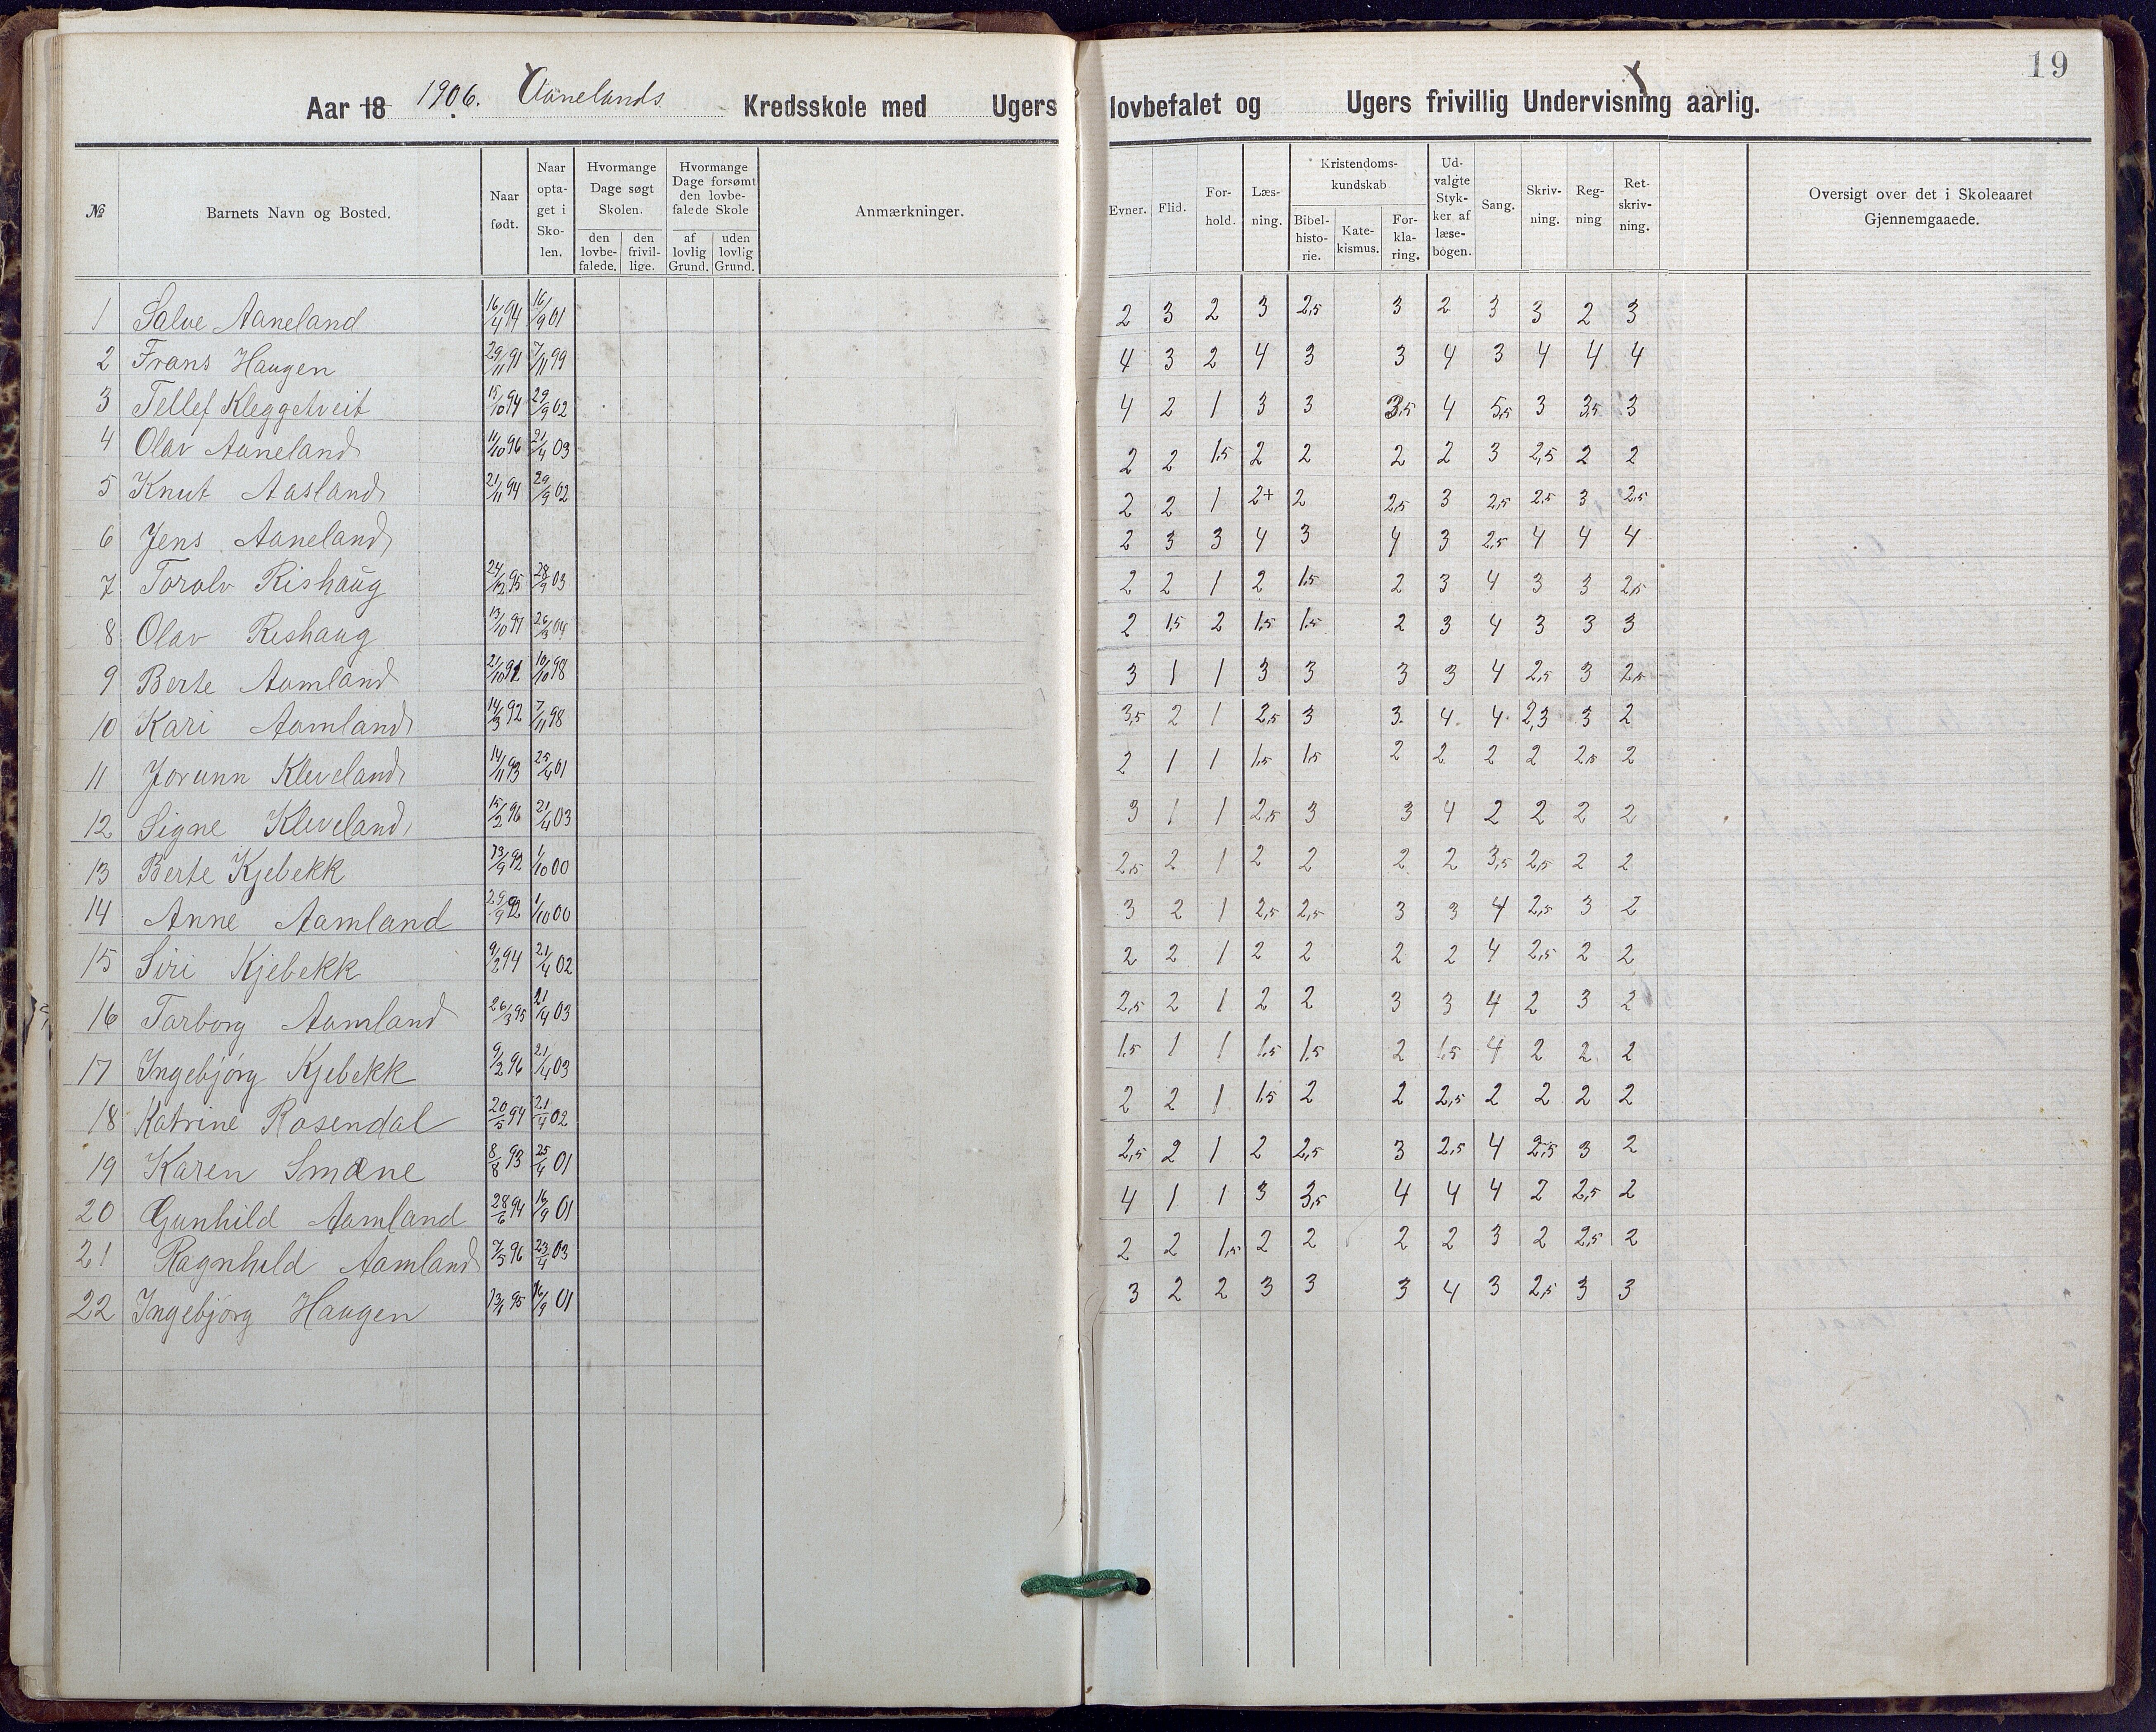 19
Aar 18 1906. Aanelands Kredsskole med Ugers lovbefalet og Ugers frivillig Undervisning aarlig.
№ Barnets Navn og Bosted. Naar født. Naar opta- get i Sko- len. Hvormange Dage søgt Skolen. den lovbe- falede. den frivil- lige. Hvormange Dage forsømt den lovbe- falede Skole af lovlig Grund. uden lovlig Grund. Anmærkninger. Evner. Flid. For- hold. Læs- ning. Kristendoms- kundskab Bibel- histo- rie. Kate- kismus. For- kla- ring. Ud- valgte Styk- ker af læse- bogen. Sang. Skriv- ning. Reg- ning Ret- skriv- ning. Oversigt over det i Skoleaaret Gjennemgaaede.
1 Salve Aaneland 16/4 94 16/9 01 2 3 2 3 2,5 3 2 3 3 2 3
2 Frans Haugen 29/11 91 7/11 99 4 3 2 4 3 3 4 3 4 4 4
3 Tellef Kleggetveit 15/10 94 29/9 02 4 2 1 3 3 3,5 4 5,5 3 3,5 3
4 Olav Aaneland 11/10 96 21/4 03 2 2 1,5 2 2 2 2 3 2,5 2 2
5 Knut Aasland 21/11 94 29/9 02 2 2 1 2+ 2 2,5 3 2,5 2,5 3 2,5
6 Jens Aaneland 2 3 3 4 3 4 3 2,5 4 4 4
7 Torolv Rishaug 24/12 95 28/9 03 2 2 1 2 1,5 2 3 4 3 3 2,5
8 Olav Rishaug 13/10 97 26/3 04 2 1,5 2 1,5 1,5 2 3 4 3 3 3
9 Berte Aamland 21/10 91 10/10 98 3 1 1 3 3 3 3 4 2,5 3 2,5
10 Kari Aamland 14/3 92 7/11 98 3,5 2 1 2,5 3 3 4 4 2,3 3 2
11 Jorunn Kleveland 14/11 93 25/4 01 2 1 1 1,5 1,5 2 2 2 2 2,5 2
12 Signe Kleveland 15/2 96 21/4 03 3 1 1 2,5 3 3 4 2 2 2 2
13 Berte Kjebekk 23/9 92 1/10 00 2,5 2 1 2 2 2 2 3,5 2,5 2 2
14 Anne Aamland 29/9 92 1/10 00 3 2 1 2,5 2,5 3 3 4 2,5 3 2
15 Siri Kjebekk 9/2 94 21/4 02 2 2 1 2 2 2 2 4 2,5 2 2
16 Tarborg Aamland 26/3 95 21/4 03 2,5 2 1 2 2 3 3 4 2 3 2
17 Ingebjørg Kjebekk 9/2 96 21/4 03 1,5 1 1 1,5 1,5 2 1,5 4 2 2 2
18 Katrine Rosendal 20/5 94 21/4 02 2 2 1 1,5 2 2 2,5 2 2 2 2
19 Karen Smæne 8/8 93 25/4 01 2,5 2 1 2 2,5 3 2,5 4 2,5 3 2
20 Gunhild Aamland 28/6 94 16/9 01 4 1 1 3 3,5 4 4 4 2 2,5 2
21 Ragnhild Aamland 7/5 96 23/4 03 2 2 1,5 2 2 2 2 3 2 2,5 2
22 Ingebjørg Haugen 95 16/9 01 3 2 2 3 3 3 4 3 2,5 3 3